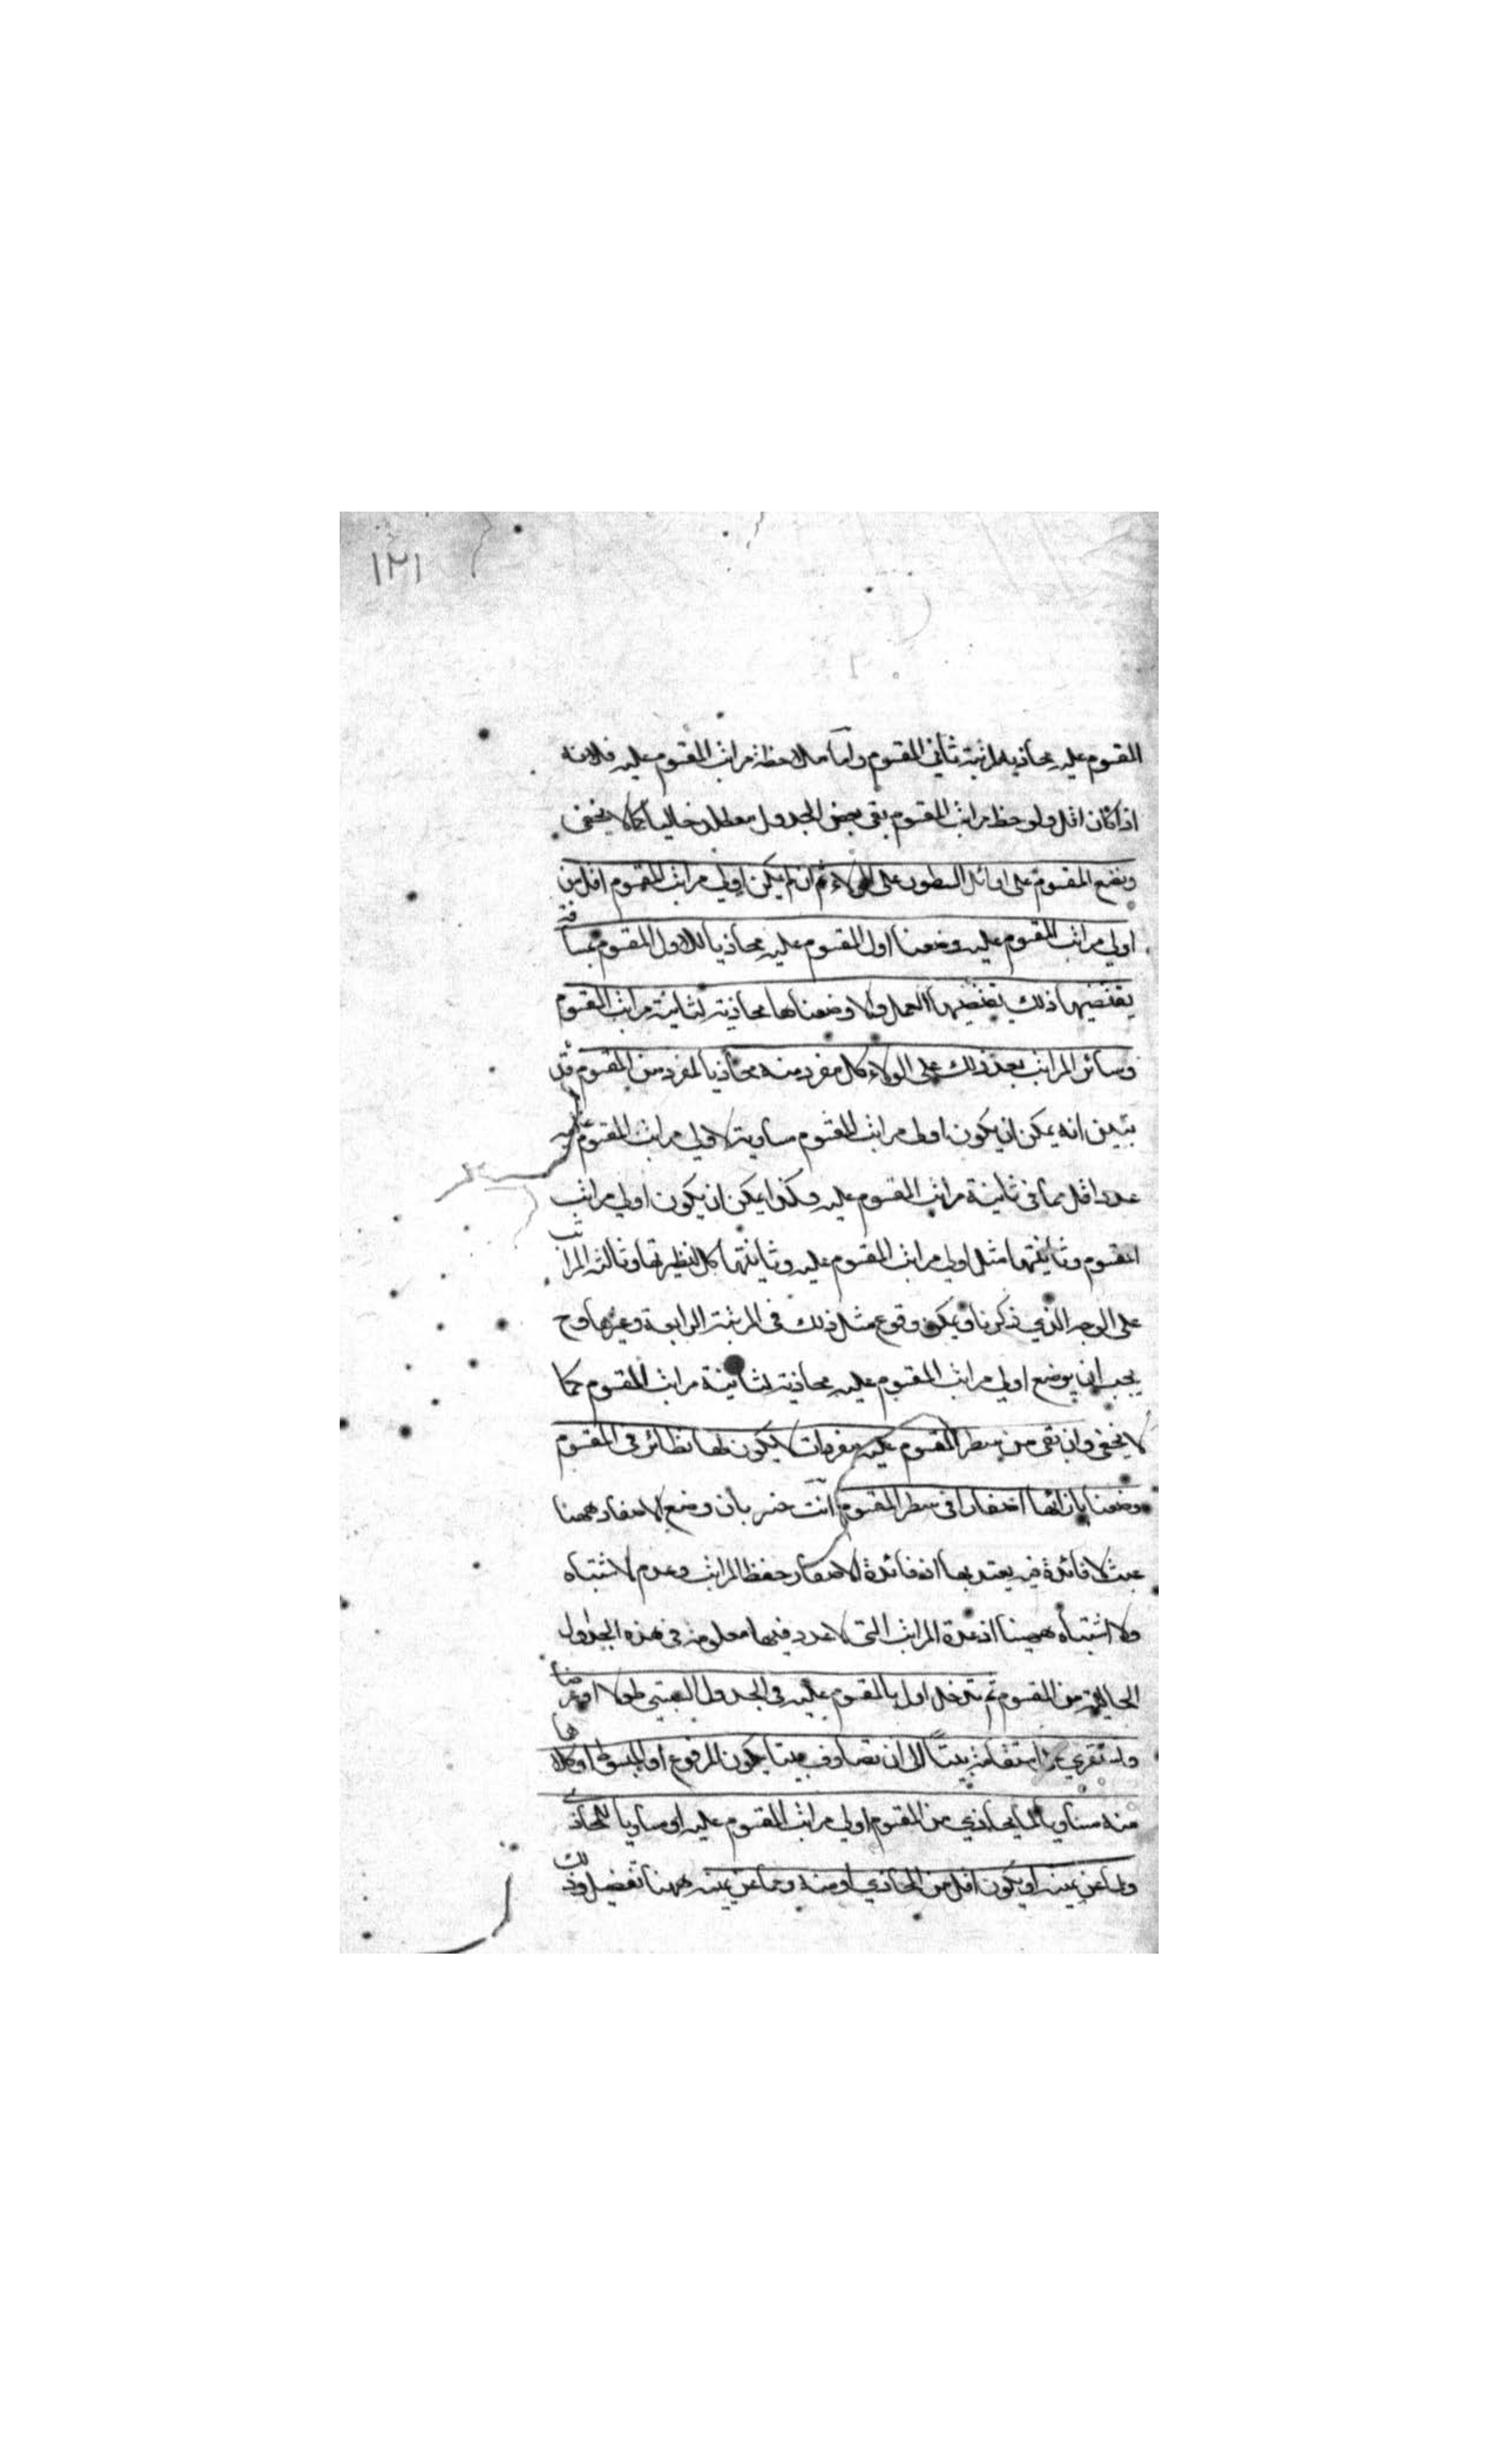 ١٢١
المقسوم عليه محاذيه لمرتبة ثاني المقسوم واما ملاحظة مراتب المقسوم عليه فلانه
اذا كان اقل ولوحظ مراتب المقسوم بقي بعض الجدول معطلا وخاليا كما لا يخفى
ونضع المقسوم على اوائل السطور على الولاء ثم ان لم يكن اولى مراتب المقسوم اقل من
اولى مراتب المقسوم عليه وضعنا اول المقسوم عليه محاذيا للاول المقسوم بمسافة
يقتضيها ذلك يقتضيها العمل والا وضعناها محاذية لثانية مراتب المقسوم
وسائر المراتب بعد ذلك على الولاء كل مفرد منه محاذيا لمفرد من المقسوم قد
تبين انه يمكن ان يكون اولى مراتب المقسوم مساوية لاولى مراتب المقسوم عليه
عددا اقل مما في ثانية مراتب المقسوم عليه وكذا يمكن ان يكون اولى مراتب
المقسوم وثانيتها مثل اولى مراتب المقسوم عليه وثانيتها كل لنظيرتها وثالثة المراتب
على الوجه الذي ذكرنا ويمكن وقوع مثل ذلك في المرتبة الرابعة وغيرها وح
يجب ان يوضع اولى مراتب المقسوم عليه محاذية لثانية مراتب المقسوم كما
لا يخفى وان بقى من سطر المقسوم عليه مفردات لا يكون لها نظائر في المقسوم
وضعنا بازائها اصفارا في سطر المقسوم انت خبير بان وضع الاصفار ههنا
عبث لا فائدة فيه يعتد بها اذ فائدة الاصفار حفظ المراتب وعدم الاشتباه
ولا اشتباه ههنا اذ عدة المراتب التي لا عدد فيها معلومة في هذه الجداول
الخالية من المقسوم ثم ندخل اولا بالمقسوم عليه في الجدول الستيني طولا او عرضا
ولنستقرئ استقامته بيتا بيتا الى ان نصادف بيتا يكون المرفوع او المبسوط او كلاهما
منه مساويا لما يحاذي من المقسوم اولى مراتب المقسوم عليه او مساويا للمحاذي
ولما عن يمينه او يكون اقل من المحاذي او منه وما عن يمينه ههنا تفصيل وذلك